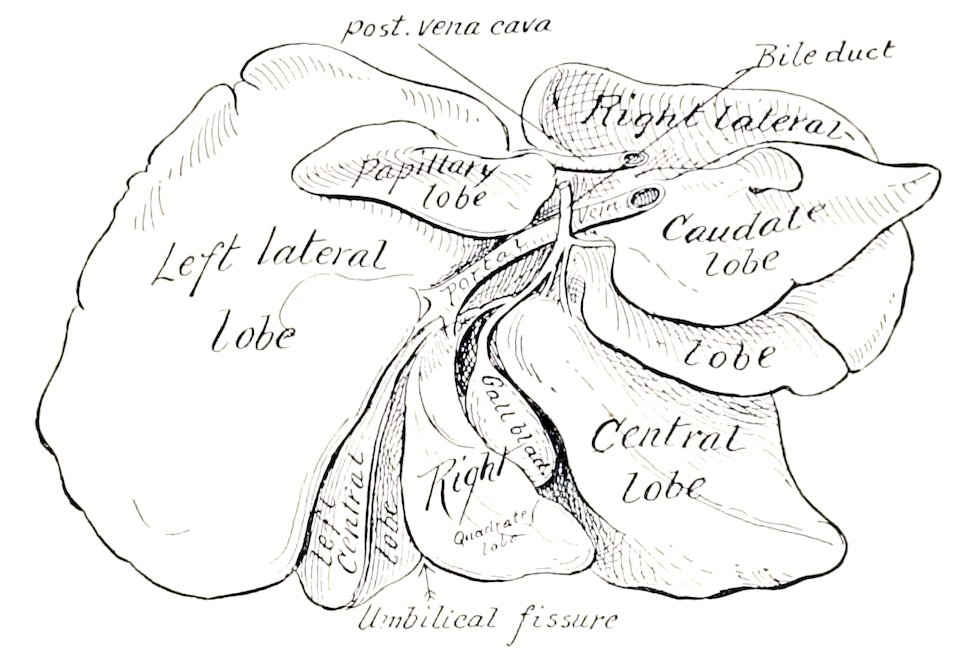 post. vena cava
Bile duct
Right lateral
Papillary
lobe
Vein
Caudate
lobe
Left lateral
lobe
Portal
lobe
Gall blad.
Central
lobe
Right
Quadrate
lobe
left
Central
lobe
Umbilical fissure